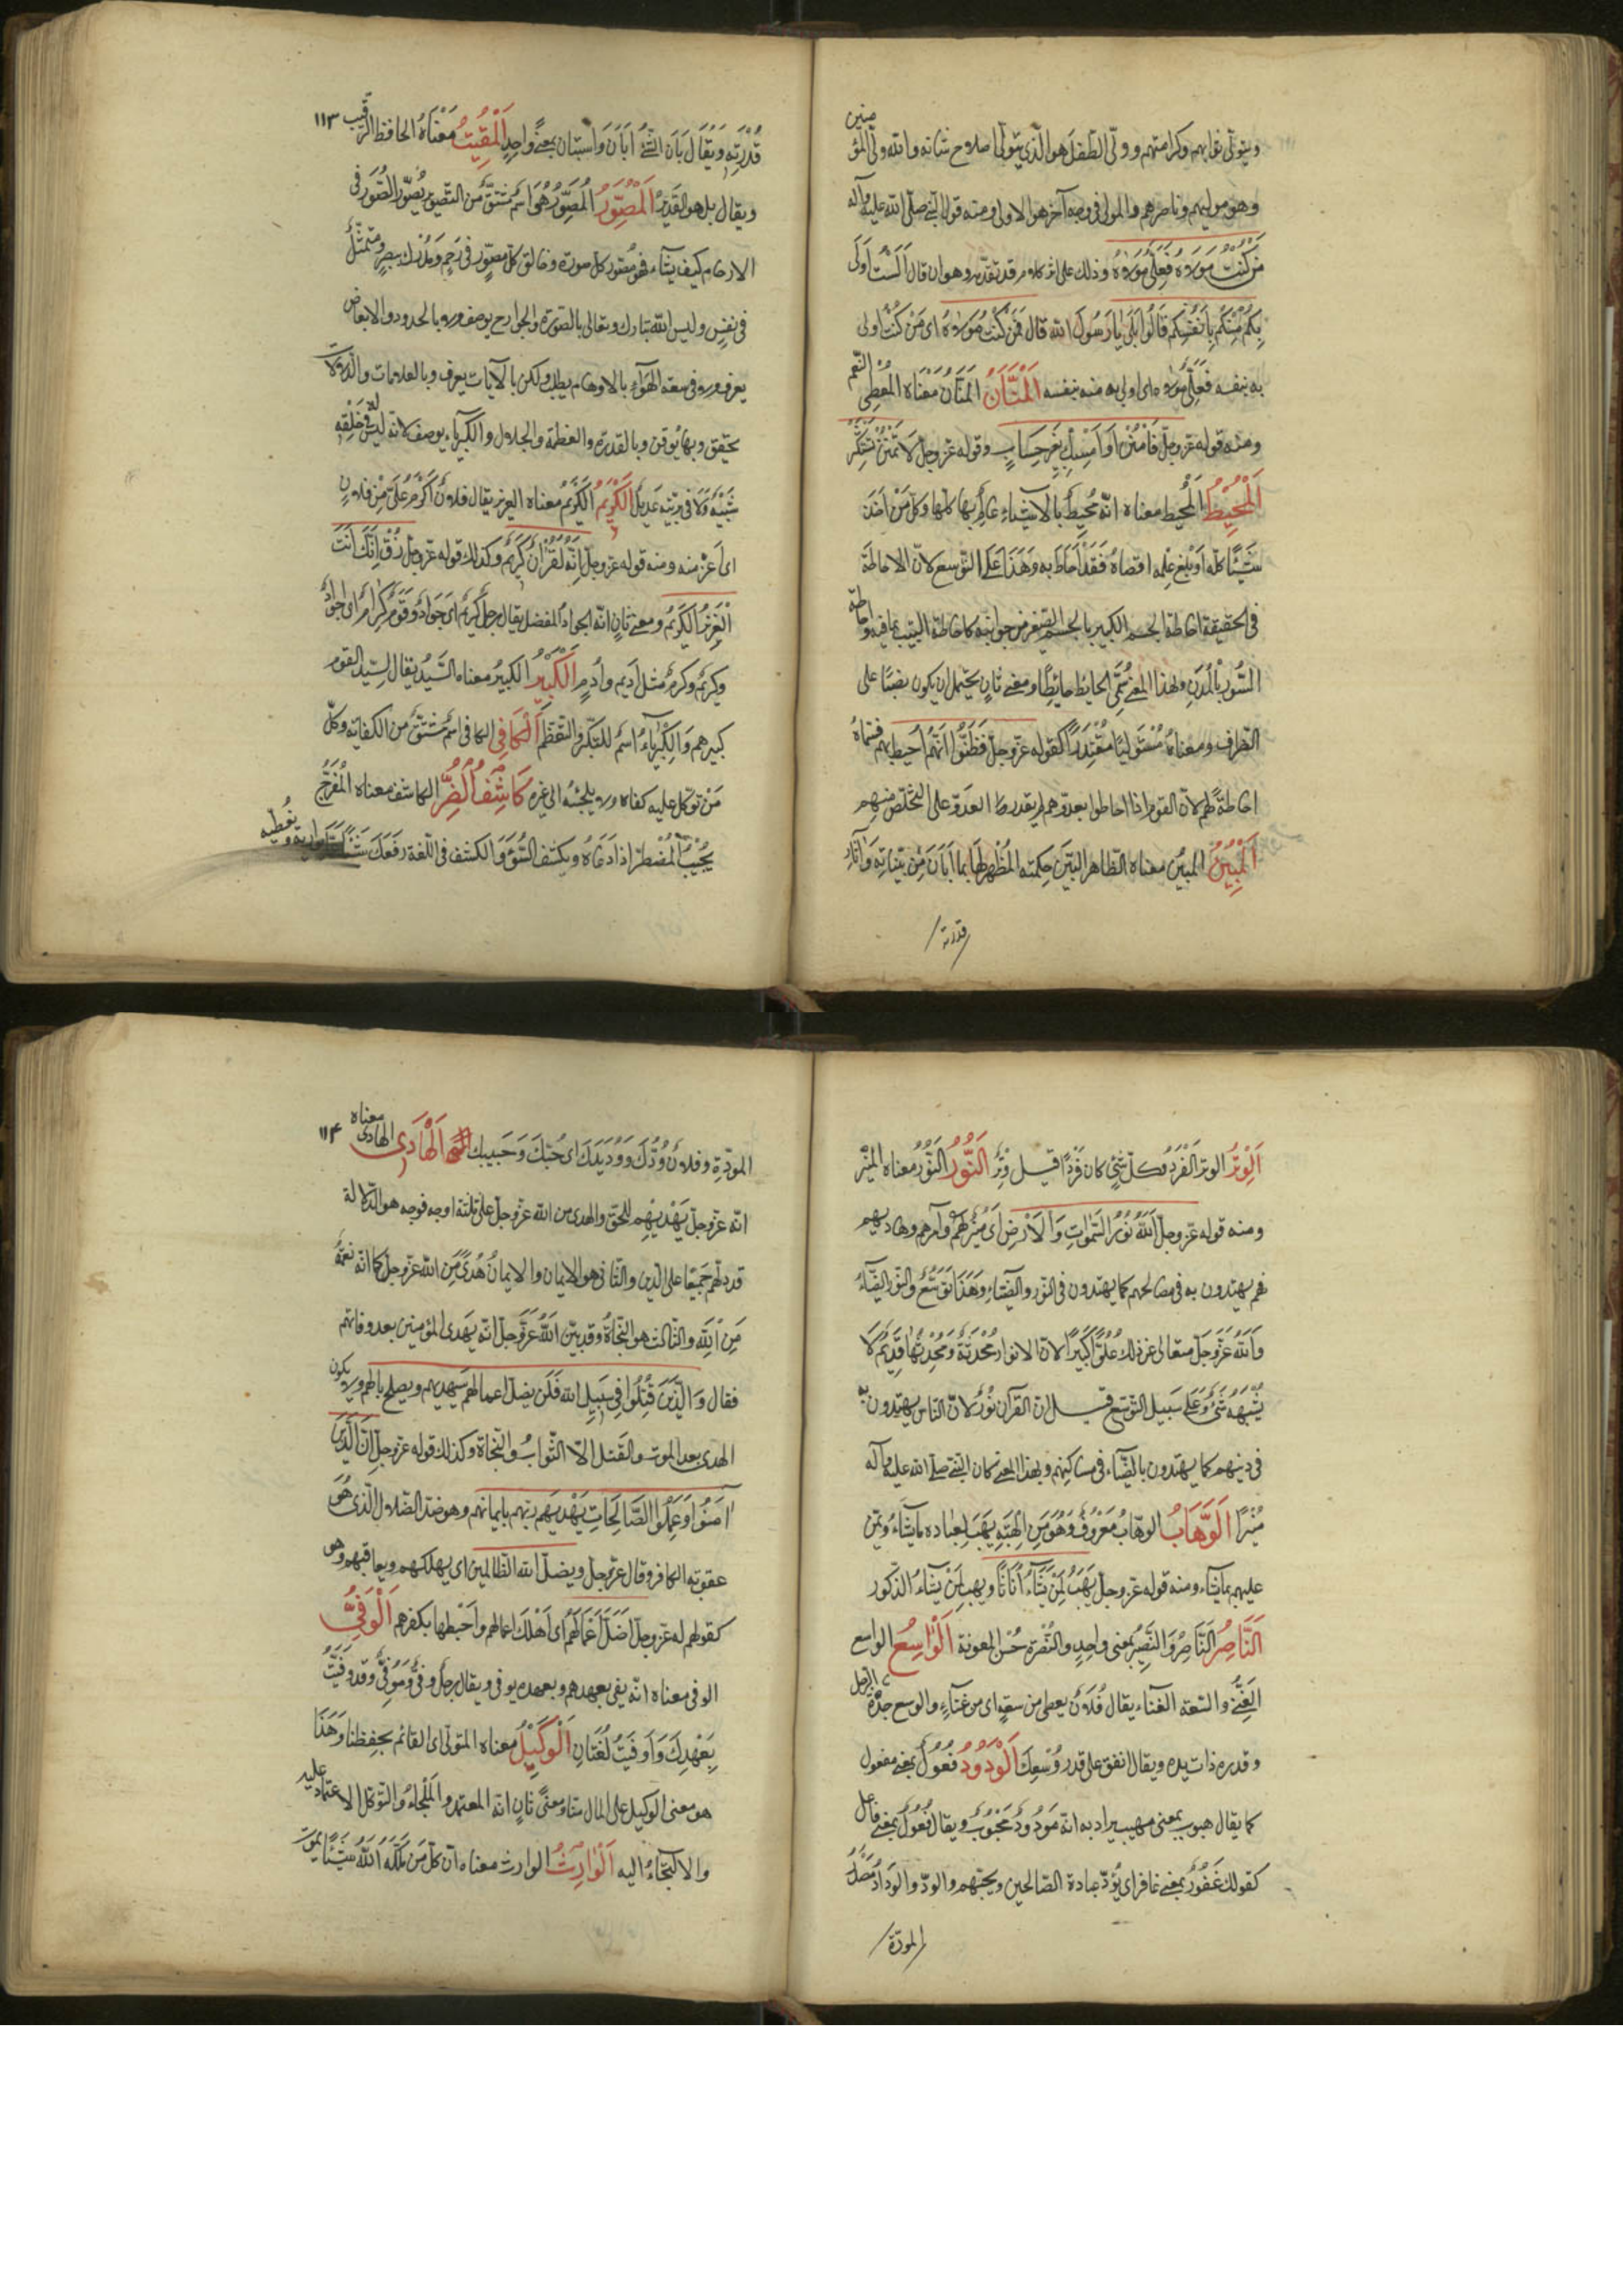 ويتولى ثوابهم وكرامتهم وولى الطفل هو الذى يتولى اصلاح شانه والله ولى المؤمنين
وهو موليهم وناصرهم والمولى فى وجه آخر هو الاولى ومنه قول النبى صلى الله عليه وآله
مَن كُنْتُ مَوْلَاهُ فَعَلِىٌّ مَوْلَاهُ وذلك على اثر كلام قد تقدّمه وهو ان قال اَلَسْتُ اَوْلَى
بِكُمْ مِنْكُمْ بِاَنْفُسِكُم قَالُوا بَلَى يا رَسُولَ الله قال فَمَن كُنْتُ مَوْلَاهُ اى مَنْ كُنْتُ اولى
به بنفسه فَعَلِىٌّ مولاه اى اولى به منه بنفسه اَلْمَنَّانُ المَنَّانُ مَعْنَاه المُعْطِى النّعم
ومنه قوله عزوجلّ فَامْنُنْ اَوْ اَمْسِكْ بِغَيْرِ حِسَابٍ وقوله عزوجل لَا تَمْنُنْ تَسْتَكْثِرُ
اَلْمُحِيْطُ المُحيط معناه انّه مُحِيطٌ بالاشياء عَالِمٌ بها كلّها وكلّ مَنْ اَخَذَ
شَيْئًا كلّه اَوْ بَلَغ عِلْمُه اقصاهُ فَقَدْ اَحَاطَ بِه وَهَذَا عَلَى التّوسع لانّ الاحاطة
فى الحقيقة احاطة الجسم الكبير بالجسم الصّغير من جوانبه كاحاطة البيت بما فيه واحاطة
السُّور بِالْمُدُنِ ولهذا المعنى سُمِّىَ الحايط حائطًا ومعنى ثانٍ يحتمل ان يكون نصبًا على
الظرف ومعناهُ مُسْتَولِيًا مُقْتَدِرًا كقوله عزوجل فَظَنُّوا اَنَّهُمْ اُحيط بهم فسمّاهُ
احَاطةً لهم لانّ القوم اذا احاطوا بعدوّهم لم يقدر العدوّ على التخلّص منهم
اَلْمُبِيْنُ المُبيْن معناه الظّاهر البيّن حِكمته المُظهِر لها بما اَبَانَ مِنْ بَيِّنَاتِهِ وَآثار
قدرته
١١٣
قُدْرَتِه وَيُقَال بَانَ الشَّىْءُ اَبَانَ وَاسْتبَان بمعنًى واحدٍ اَلْمُقِيْتُ مَعْنَاهُ الحافظ الرَّقيب
ويقال بل هو القَدِيْرُ اَلْمُصَوِّرُ المُصَوِّرُ هُوَ اسْم مُشتَقٌّ من التصوير يُصَوِّرُ الصُّوَرَ فى
الارحام كيف يشاء فهو مُصَوِّر كلّ صورة وخالق كلّ مصوَّرٍ فى رَحِمٍ وَمُدْرِك ببصرٍ ومتمثَّلٌ
فى نفسٍ وليس الله تبارك وتعالى بالصّورة والجوارح يوصف ولا بالحدود والابعاض
يعرف ولا فى سعة الهَوَاءِ بالاوهام يطلب ولكن بالآيات يعرف وبالعلامات والدّلالات
يحقّق وبها يُوقَن وبالقدرة والعَظمة والجلال والكبرياء يوصف لانّه ليس له فى خَلْقِه
شَبِيْهٌ وَلَا فى بَرِيّته عَدِيلٌ اَلْكَرِيْمُ اَلكَرِيْمُ معناه العزيز يقال فلانٌ اَكْرَمُ عَلَىَّ مِنْ فلانٍ
اى اَعَزّ منه ومنه قوله عزوجل اِنَّهُ لَقُرْاٰنٌ كَرِيمٌ وكذلك قوله عزوجل ذُقْ اِنَّكَ اَنْتَ
الْعَزِيْزُ الْكَرِيْمُ ومعنى ثانٍ انّه الجوادُ المفضل يقال رجلٌ كريمٌ اى جَوادٌ وَقَوْمٌ كِرَامٌ اى اجوادٌ
وكريمٌ وكرمٌ مثل اَدِيم واُدمٍ اَلْكَبِيْرُ الكبيرُ معناه السَّيّدُ يقال لسيّد القوم
كبيرهم وَالكِبْرِيَاءُ اسْمٌ للتكبّر والتعَظّم اَلْكَافِى الكافى اسْمٌ مُشْتَقٌّ مِن الكفاية وكلّ
مَنْ توكّل عليه كفاه ولا يلجئه الى غيره كَاشِفُ الضُّرِّ الكاشف معناه المُفَرِّجُ
يُجيْبُ المُضطرّ اذا دَعَاهُ ويكشف السّوْءَ وَالكشف فى اللّغة رفعك شَيْئًا عمّا يواريه ويُغطّيه
اَلْوِتْرُ الوتر الفَرْدُ وكلّ شئٍ كان فَرْدًا قيل وِتْرٌ اَلنُّوْرُ النُّوْرُ معناه المُنيْر
ومنه قوله عزوجل اَللهُ نُوْرُ السَّمٰوَاتِ وَالْاَرْضِ اَىْ مُنيْرٌ لَهُم وآمرهم وهاديهم
فهم يهتدون به فى مصالحهم كما يهتدون فى النّور والضّياءِ وهَذَا تَوَسُّعٌ والنّور الضّياءُ
وَاللهُ عَزَّوَجَلّ متعالى عن ذلك عُلُوًّا كَبِيْرًا لانّ الانوار مُحْدَثَةٌ وَمُحْدِثُها قَدِيْمٌ لَا
يُشْبِهُهُ شَىْءٌ وَعَلَى سبيل التوسّع قيل انّ القرآن نُوْرٌ لانّ النّاس يهتدون به
فى دينهم كما يهتدون بالضّياء فى مساكنهم ولهذا المعنى كان النبى صلى الله عليه وآله
مُنِيْرًا اَلْوَهَّابُ الوهّابُ مَعْرُوفٌ وَهُوَ مِنَ الْهِبَةِ يَهَبُ لِعباده ما يشاءُ ويَمُن
عليهم بما يشاء ومنه قوله عزوجل يَهَبُ لِمَنْ يَشَاءُ اِنَاثًا ويهب لِمَنْ يَشَاءُ الذّكور
اَلنَّاصِرُ النَّاصِرُ وَالنَّصِيْرُ بمعنى واحِدٍ والنُّصْرَة حُسْن المعونة اَلْوَاسِعُ الواسع
الغَنِىُّ والسّعة الغناء يقال فُلَانٌ يعطى من سعةٍ اى من غِنَاءٍ والوسع جِدَةُ الرّجل
وقدره ذات يده ويقال انفق على قدر وُسْعِكَ اَلْوَدُوْدُ فَعُوْلٌ بمعنى مفعول
كما يقال هيوب بمعنى مهيب يراد به انه مَوْدُوْدٌ مَحْبُوبٌ ويقال فَعُوْلٌ بمعنى فاعل
كقولك غَفُوْرٌ بمعنى غافر اى يُوَدّ عباده الصّالحين ويحبّهم والودّ والودادُ مَصْدَرُ
المودّة
١١٤
المودّة وفلانٌ وُدُّكَ وَوَدِيْدُكَ اى حُبُّكَ وَحَبِيبك اَلْهَادِى الهادى معناه
انّه عزّوجلّ يَهْدِيْهِم للحقّ والهدى من الله عزّوجل على ثلثة اوجه فوجه هو الدّلالة
قد دلّهم جَمِيْعًا على الدّين والثّانى هو الايمان والايمانُ هُدًى مِن اللهِ عزّوجلّ كما انّه نعمةٌ
مِنَ اللهِ والثّالث هو النّجاةُ وقد بيّن اللهُ عَزّوَجلّ انّه يهدى المؤمنين بعد وفاتهم
فقال وَالَّذِيْنَ قُتِلُوا فِى سَبِيلِ الله فَلَن يضلّ اعمالهم سيهديهم ويصلح بالهم ولا يكون
الهدى بعد الموت والقَتل الّا الثّوابُ والنجاة وكذلك قوله عزوجلّ اِنَّ الَّذِيْنَ
آمَنُوا وَعَمِلُوا الصَّالِحَاتِ يَهْدِيْهِم ربّهم بايمانهم وهو ضدّ الضّلال الّذى هُوَ
عقوبة الكافر وقال عزّوجلّ ويضلّ الله الظّالمين اى يهلكهم ويعاقبهم وهو
كقولهم له عزوجل اَضَلَّ اَعْمَالَهُمْ اى اَهْلَكَ اعمالهم واَحْبَطَها بكفرهم اَلْوَفِىُّ
الوفى معناه انّه يفى بعهدهم وبعهده يوفى ويقال رجلٌ وفىٌّ وَمُوفِىٌّ وقد وَفَيْتُ
بِعَهْدِكَ وَاَوفَيْتُ لُغَتَانِ اَلْوَكِيْلُ معناه المتولّى اى القائم بحفظنا وَهَذَا
هو معنى الوكيل على المال منّا ومعنًى ثانٍ انّه المعتمد والمَلْجاءُ والتّوكّل الاعتماد عليه
والالتجاءُ اليه اَلْوَارِثُ الوارث معناه انّ كلّ مَنْ مَلّكَهُ اللهُ شيئًا يموت